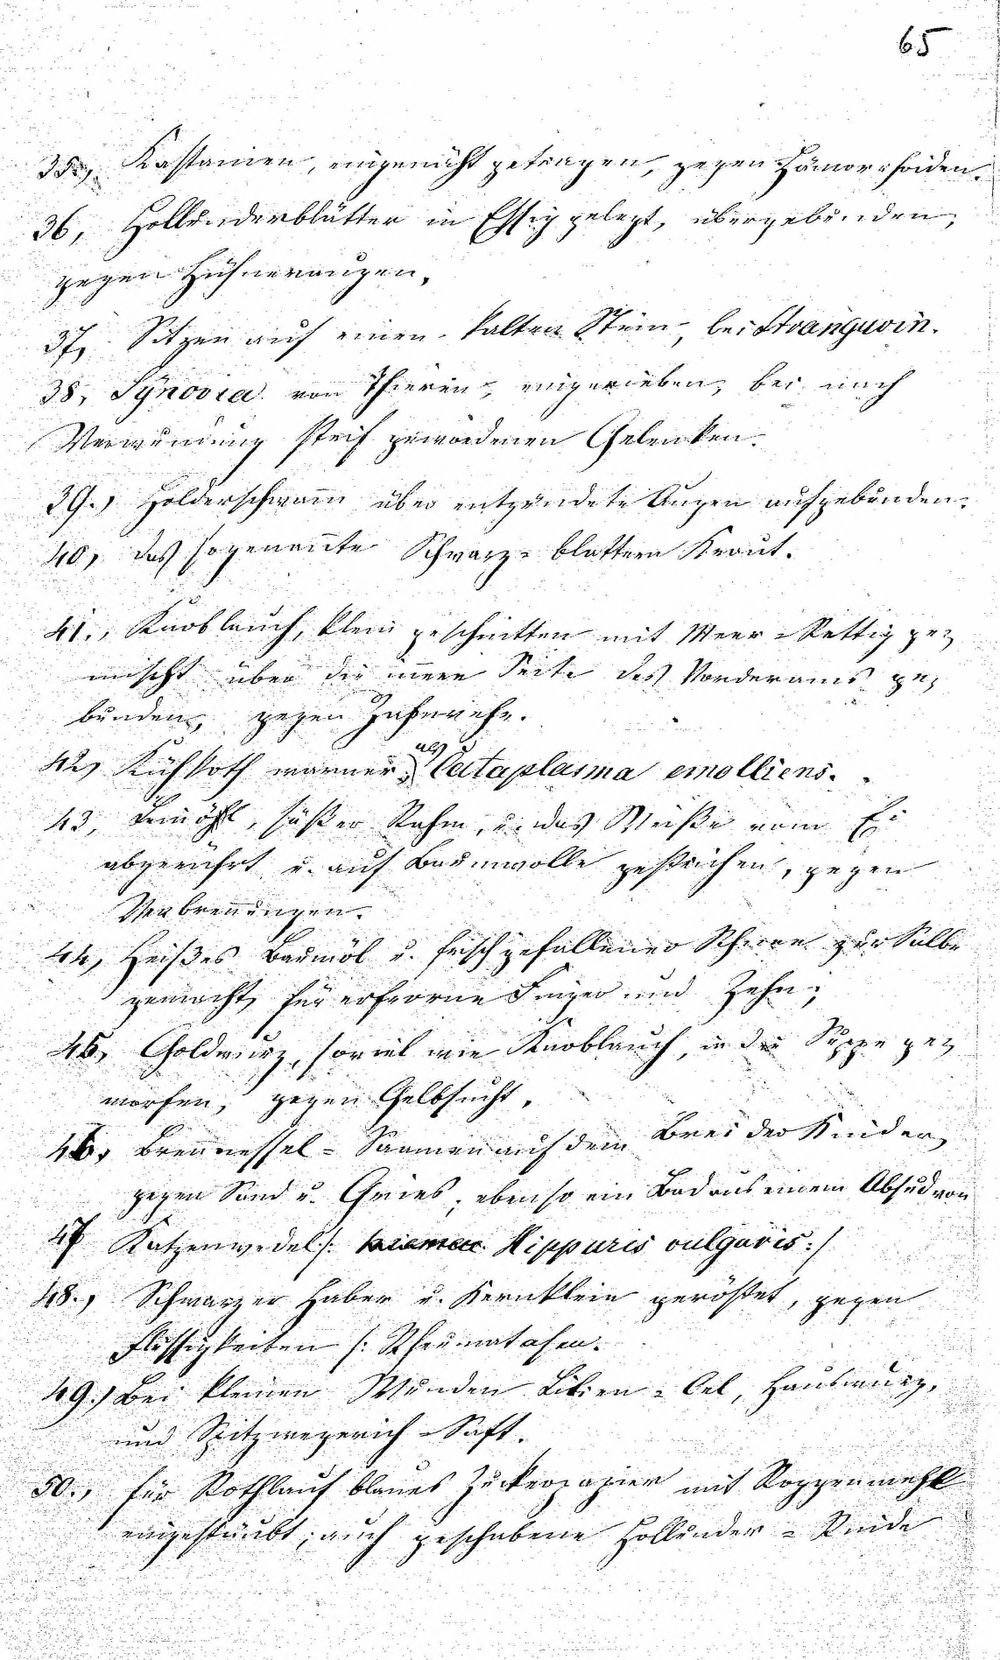 65
35., Kastanien, eingenäht getragen, gegen Hämorrhoiden.
36, Hollunderblätter in Essig gelegt, übergebunden,
gegen Hühneraugen.
37, Sitzen auf einen kalten Stein, bei Strangurin.
38, Synovia von Thieren, eingerieben, bei nach
Verwundung steif gewordenen Gelenken.
39., Holderschwam̄ über entzündete Augen aufgebunden.
40, das sogenan̄te Schwarz-blattern Kraut.
41., Knoblauch, klein geschnitten mit Meer-Rettig ge-
mischt über die in̄ere Seite des Vorderarms ge-
bunden, gegen Zahnwehe.
42, Kühkoth warmer, als Cataplasma emolliens.
43, Leinöhl, süßer Rahm, u. das Weiße vom Ei
abgerührt u. auf Baumwolle gestrichen, gegen
Verbren̄ungen.
44, Heißes Baumöl u. frisch gefallener Schnee zur Salbe
gemacht, für erfrorne Finger und Zehn;
45, Goldwurz, soviel wie Knoblauch, in die Suppe ge-
worfen, gegen Gelbsucht.
46, Bren̄nessel-Saamen auf dem Brei der Kinder,
gegen Sand u. Gries, ebenso ein Bad aus einem Absud von
47 Katzenwedel /: Hippuris vulgaris :/
48., Schwarzer Haber u. Kernklein geröstet, gegen
Flüssigkeiten /: Rheumatosen.
49.) Bei kleinen Wunden Lilien-Oel, Hauswurz,
und Spitzwegerich-Saft.
50., für Rothlauf blaues Zuckerpapier mit Roggenmehl
eingestäubt; auch geschabene Hollunder-Rinde